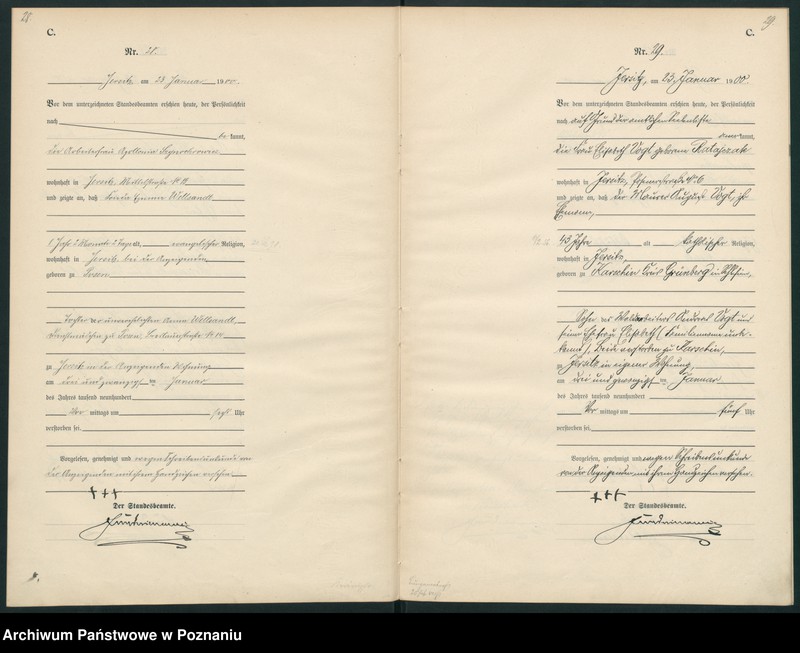 28.
C.
Nr. 28.
Jersitz am 23 Januar 1900
Vor dem unterzeichneten Standesbeamten erschien heute, der Persönlichkeit
nach
be kannt,
die Arbeiterfrau Apollonia
wohnhaft in Jersitz,
und zeigte an, daß Wollsandt
1 Jahr Monate Tage alt, evangelischer Religion,
wohnhaft in Jersitz bei der Anzeigenden
geboren zu Posen
Tochter der unverehelichten Anna Wollsandt
zu Posen
zu Jersitz in der Anzeigenden Wohnung
am drei und zwanzigsten Januar
des Jahres tausend neunhundert
Vor mittags um sechs Uhr
verstorben sei.
Vorgelesen, genehmigt und wegen Schreibensunkunde von
der Anzeigenden mit ihrem Handzeichen versehen.
+++
Der Standesbeamte.
29.
C.
Nr. 29.
Jersitz, am 23. Januar 1900
Vor dem unterzeichneten Standesbeamten erschien heute, der Persönlichkeit
nach auf Grund der
aner kannt,
die Frau Elisabeth Vogt geborene Ratajczak
wohnhaft in Jersitz, No 6
und zeigte an, daß der Maurer August Vogt, ihr
Ehemann,
43 Jahre alt katholischer Religion,
wohnhaft in Jersitz,
geboren zu Karschin Kreis Grünberg in Schlesien,
Sohn des Andreas Vogt und
seiner Ehefrau Elisabeth
kannt), Beide verstorben zu Karschin,
zu Jersitz in eigener Wohnung,
am drei und zwanzigsten Januar
des Jahres tausend neunhundert
Vor mittags um fünf Uhr
verstorben sei.
Vorgelesen, genehmigt und wegen Schreibensunkunde
von der Anzeigenden mit ihrem Handzeichen versehen.
+++
Der Standesbeamte.
Archiwum Państwowe w Poznaniu